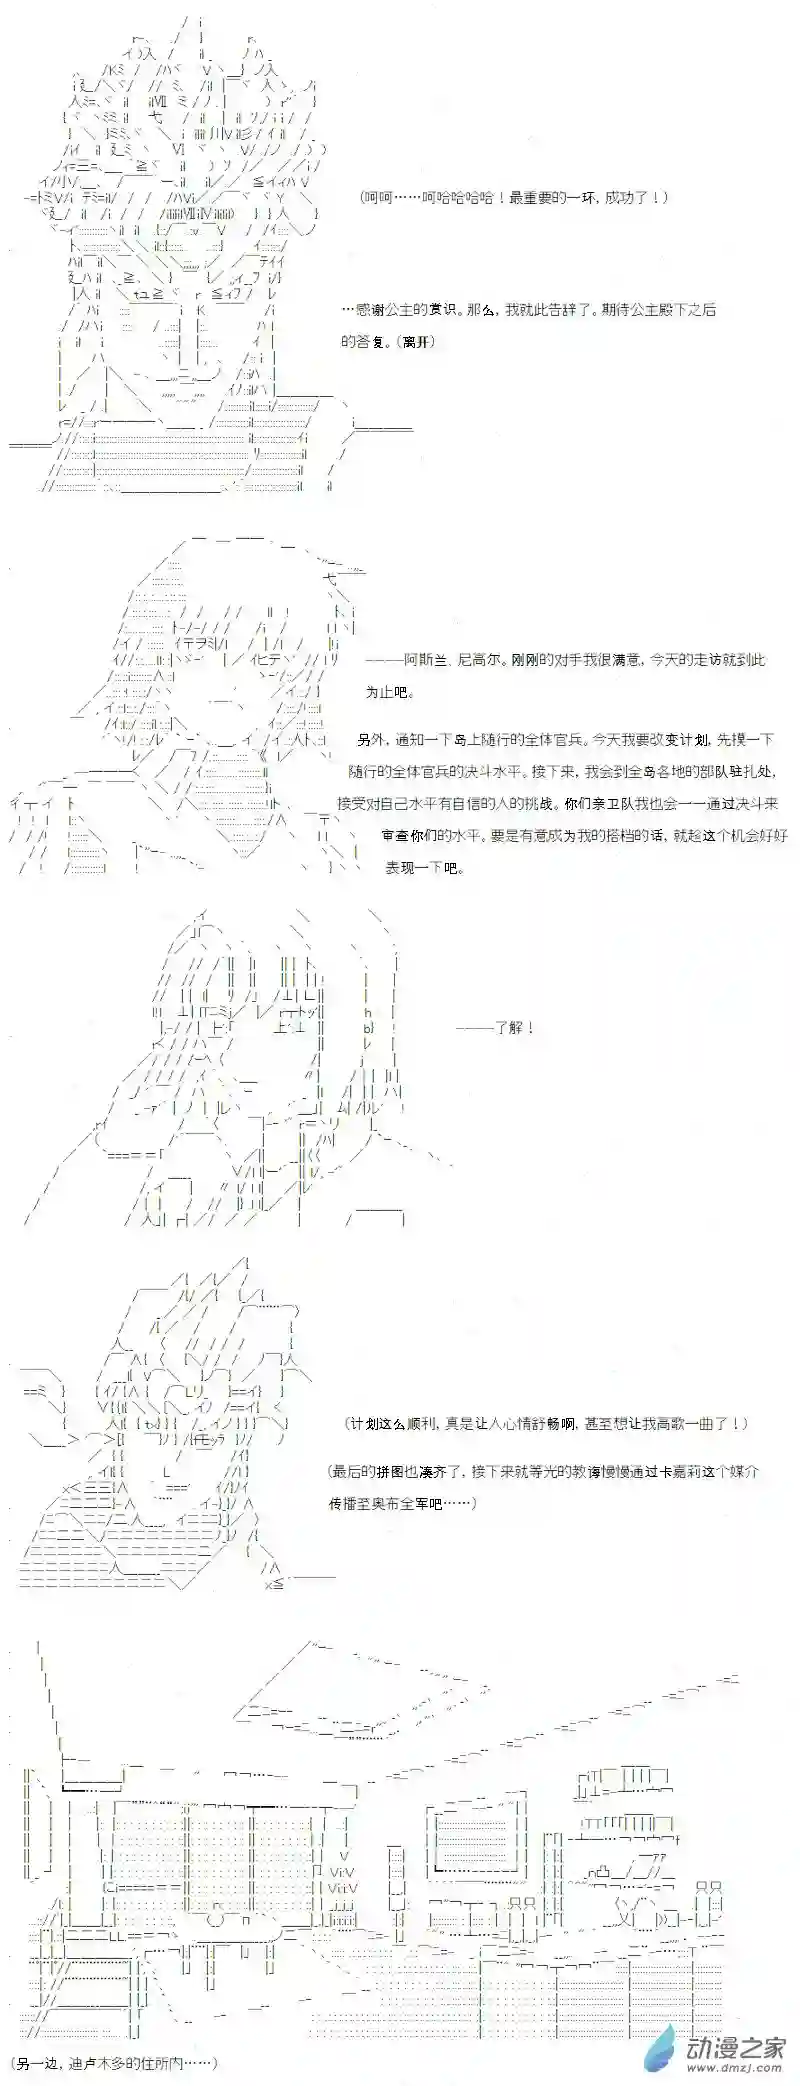 （呵呵……呵哈哈哈哈！最重要的一环，成功了！）
…感谢公主的赏识。那么，我就此告辞了。期待公主殿下之后
的答复。（离开）
———阿斯兰、尼高尔。刚刚的对手我很满意，今天的走访就到此
为止吧。
另外，通知一下岛上随行的全体官兵。今天我要改变计划，先摸一下
随行的全体官兵的决斗水平。接下来，我会到全岛各地的部队驻扎处，
接受对自己水平有自信的人的挑战。你们亲卫队我也会一一通过决斗来
审查你们的水平。要是有意成为我的搭档的话，就趁这个机会好好
表现一下吧。
———了解！
（计划这么顺利，真是让人心情舒畅啊，甚至想让我高歌一曲了！）
（最后的拼图也凑齐了，接下来就等光的教诲慢慢通过卡嘉莉这个媒介
传播至奥布全军吧……）
（另一边，迪卢木多的住所内……）
动漫之家
www.dmzj.com